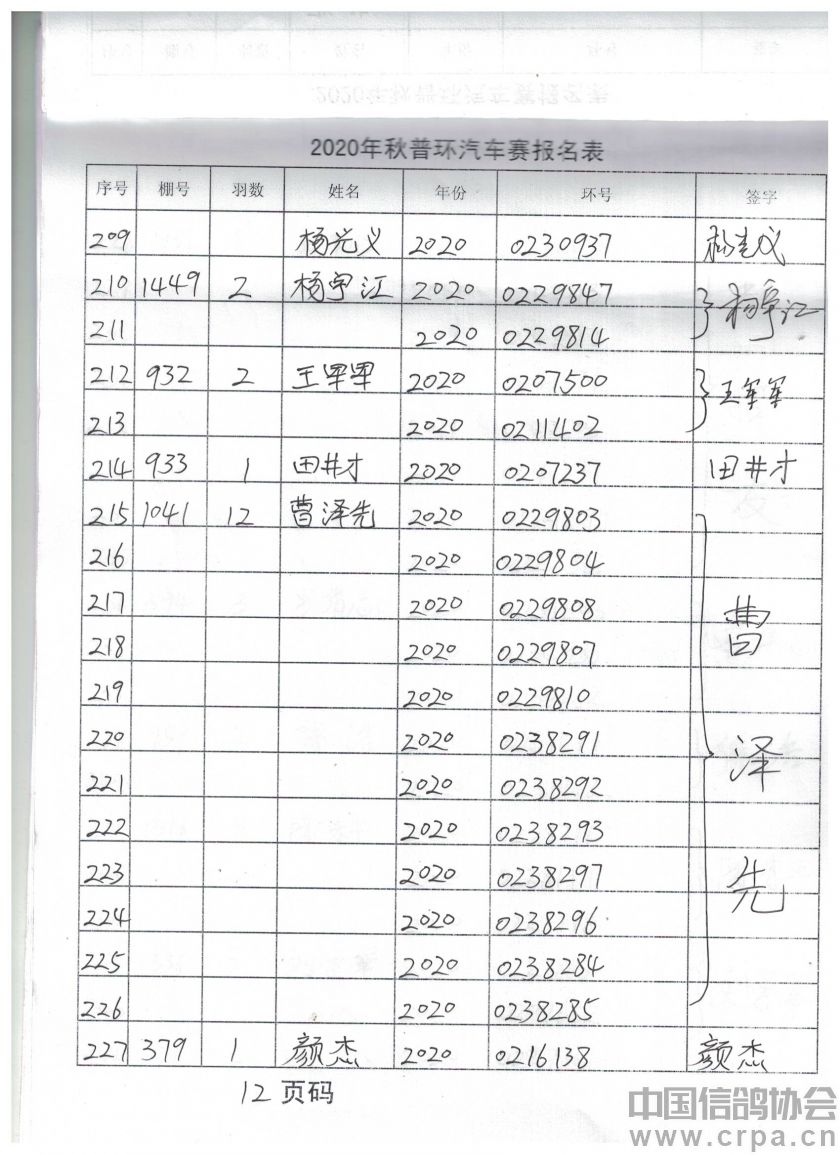 2020年秋普环汽车赛报名表
序号 棚号 羽数 姓名 年份 环号 签字
209 杨光义 2020 0230937 杨光义
210 1449 2 杨宇江 2020 0229847 杨宇江
211 2020 0229814
212 932 2 王军军 2020 0207500 王军军
213 2020 0211402
214 933 1 田井才 2020 0207237 田井才
215 1041 12 曹泽先 2020 0229803
216 2020 0229804
217 2020 0229808
218 2020 0229807
219 2020 0229810
220 2020 0238291
221 2020 0238292
222 2020 0238293
223 2020 0238297
224 2020 0238296
225 2020 0238284
226 2020 0238285
曹泽先
227 379 1 颜杰 2020 0216138 颜杰
12 页码
中国信鸽协会
www.crpa.cn